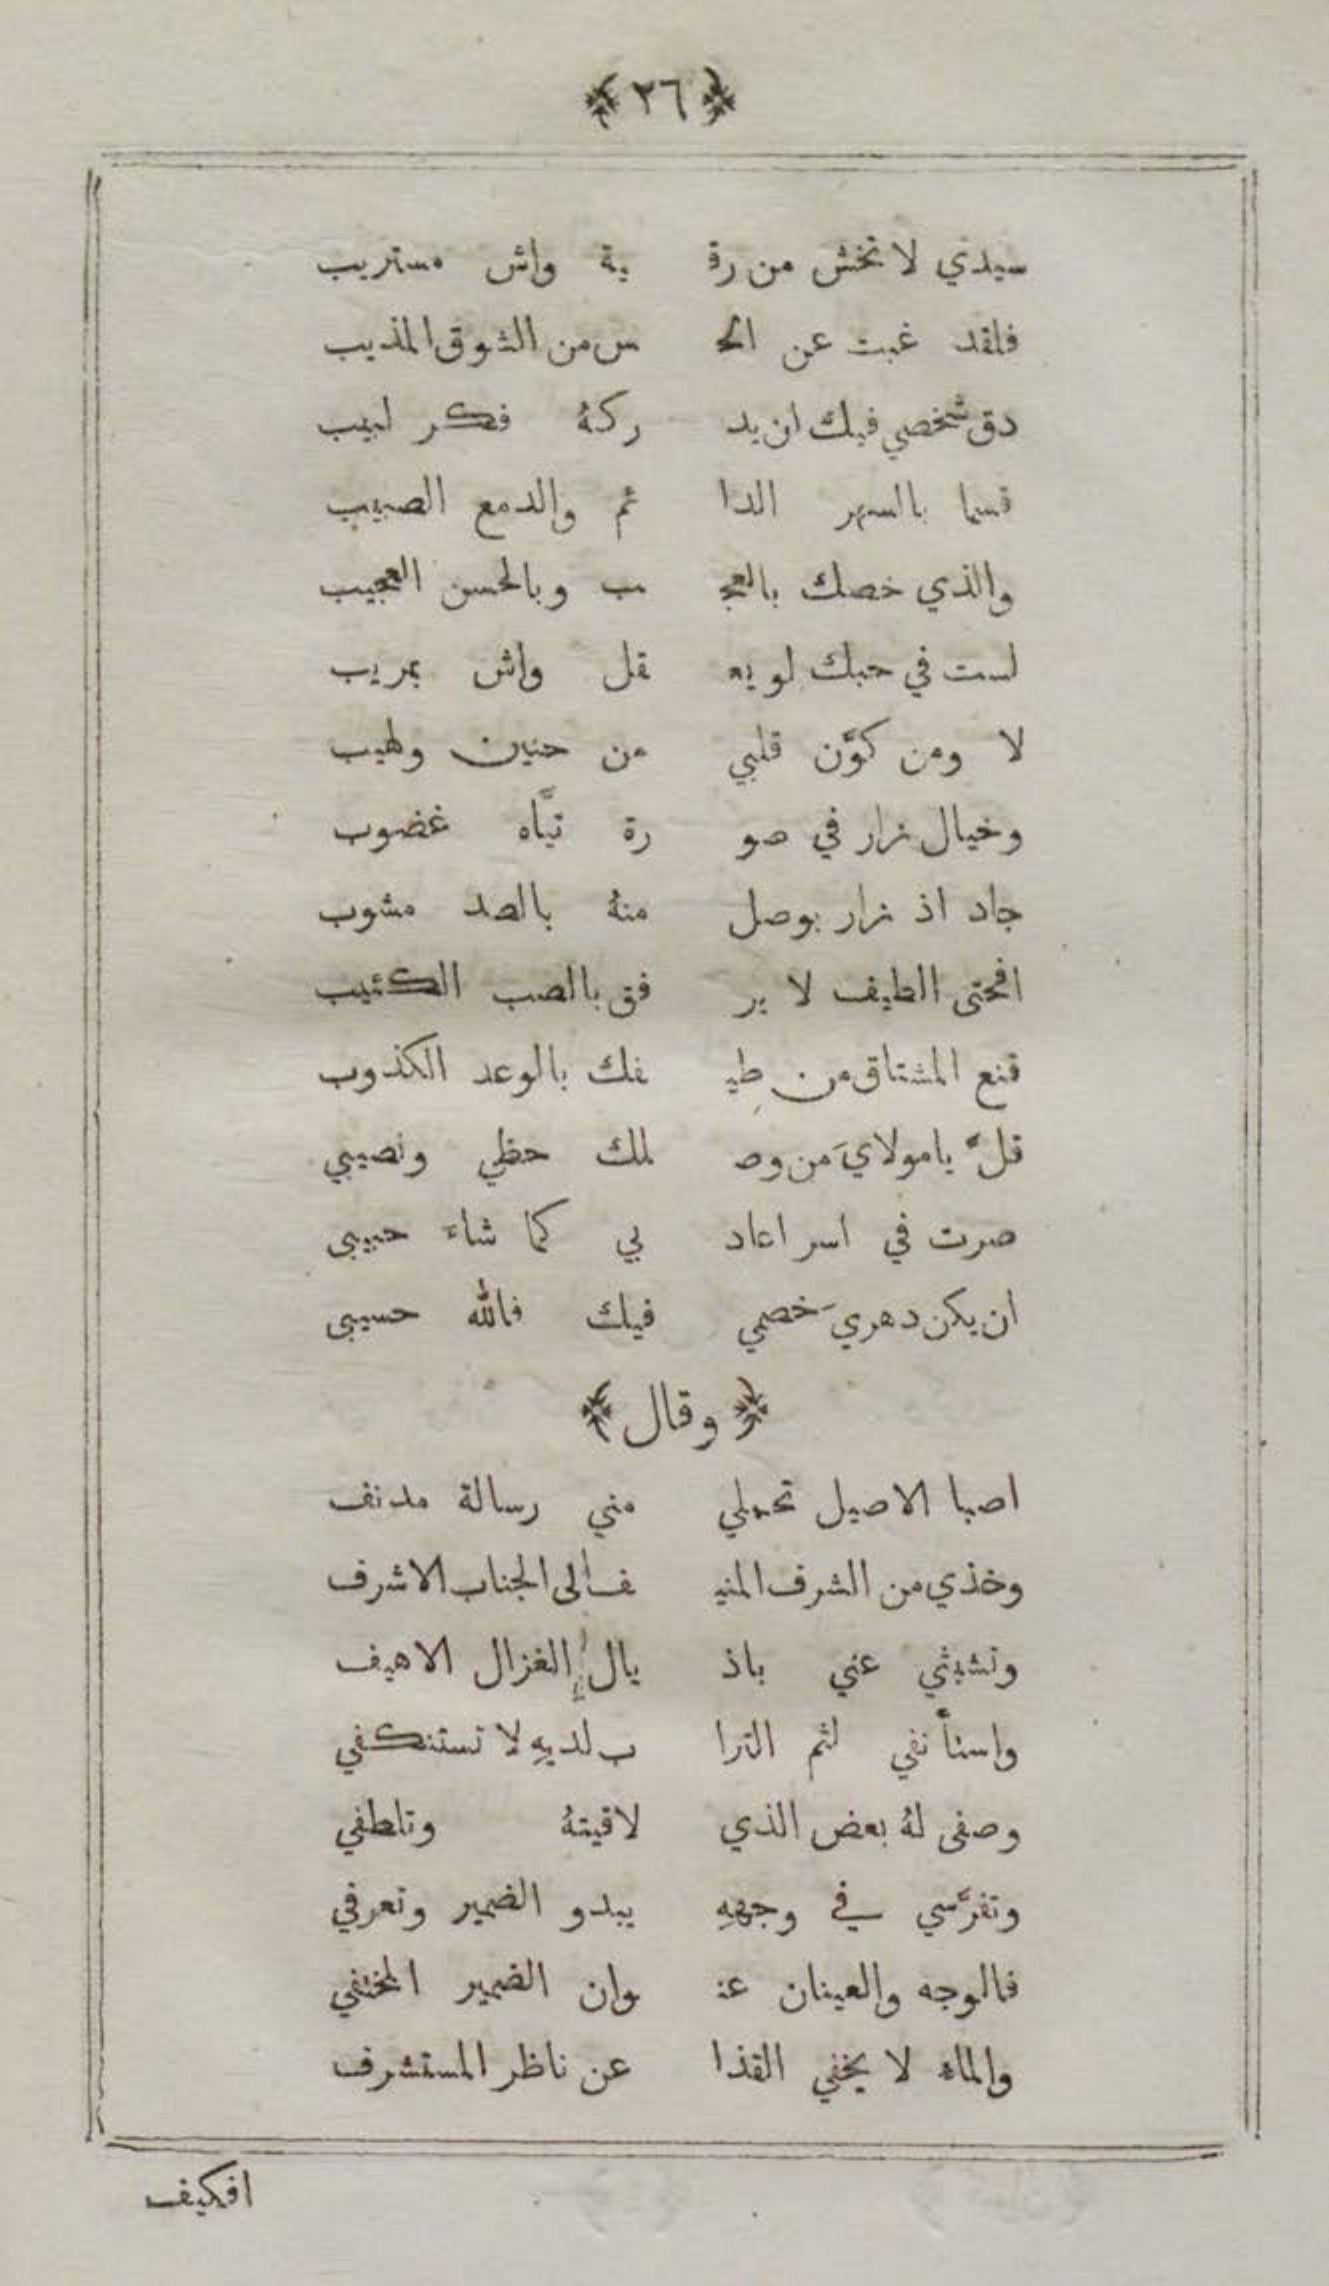 ﴿٢٦﴾
سيدي لا تخش من رقـ ـبة واش مستريب
فلقد غبت عن الحـ ـس من الشوق المذيب
دق شخصي فيك ان يد ركهُ فكر لبيب
قسما بالسهر الدا ئم والدمع الصبيب
والذي خصك بالعجـ ـب وبالحسن العجيب
لست في حبك لو يعـ ـقل واش بمريب
لا ومن كوَّن قلبي من حنين ولهيب
وخيال زار في صو رة تيَّاه غضوب
جاد اذ زار بوصل منهُ بالصد مشوب
افحتى الطيف لا ير فق بالصب الكئيب
قنع المشتاق من طيـ ـفك بالوعد الكذوب
قلَّ يا مولايَ من وصـ ـلك حظي ونصيبي
صرت في اسر اعاد بي كما شاء حبيبى
ان يكن دهريَ خصمي فيك فالله حسيبى
﴿وقال﴾
اصبا الاصيل تحملي مني رسالة مدنف
وخذي من الشرف المنيـ ـف الى الجناب الاشرف
وتشبثي عني باذ يال الغزال الاهيف
واستأنفي لثم الترا ب لديهِ لا تستنكفي
وصفى لهُ بعض الذي لاقيتهُ وتلطفي
وتفرَّسي في وجههِ يبدو الضمير وتعرفي
فالوجه والعينان عنـ ـوان الضمير المختفي
والماء لا يخفي القذا عن ناظر المستشرف
افكيف